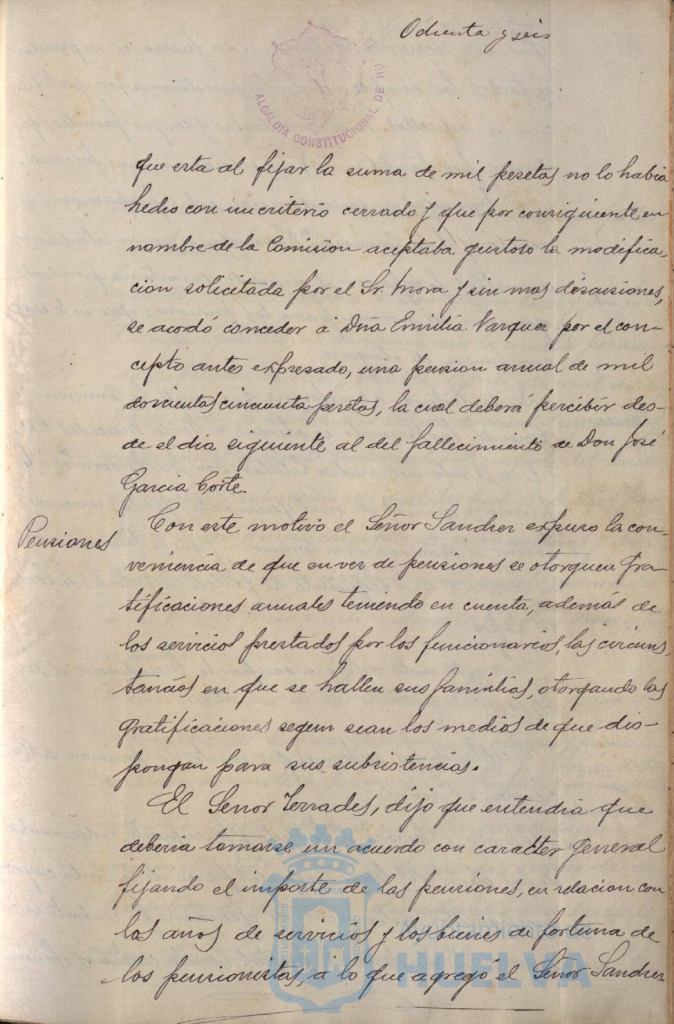 Ochenta y seis
ALCALDIA CONSTITUCIONAL DE HU
que esta al fijar la suma de mil pesetas no lo habia
hecho con un criterio cerrado y que por consiguiente en
nombre de la Comision aceptaba gustoso la modifica-
cion solicitada por el Sr. Mora y sin mas discusiones,
se acordó conceder á Dña Emilia Vazquez por el con-
cepto antes expresado, una pension anual de mil
doscientas cincuenta pesetas, la cual deberá percibir des-
de el dia siguiente al del fallecimiento de Don José
Garcia Corte.
Pensiones
Con este motivo el Señor Sanchez expuso la con-
veniencia de que en vez de pensiones se otorguen gra-
tificaciones anuales teniendo en cuenta, además de
los servicios prestados por los funcionarios, las circuns-
tancias en que se hallen sus familias, otorgando las
gratificaciones segun sean los medios de que dis-
pongan para sus subsistencias.
El Señor Terrades, dijo que entendia que
deberia tomarse un acuerdo con caracter general
fijando el importe de las pensiones, en relacion con
los años de servicios y los bienes de fortuna de
los pensionistas, á lo que agregó el Señor Sanchez
HUELVA